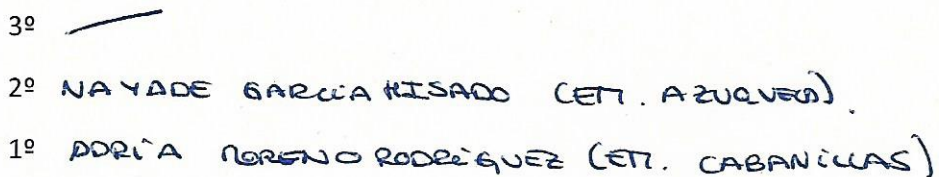 3º
2º NAYADE GARCÍA HISADO (ETM. AZUQUECA).
1º ADRÍA MORENO RODRÍGUEZ (ETM. CABANILLAS)